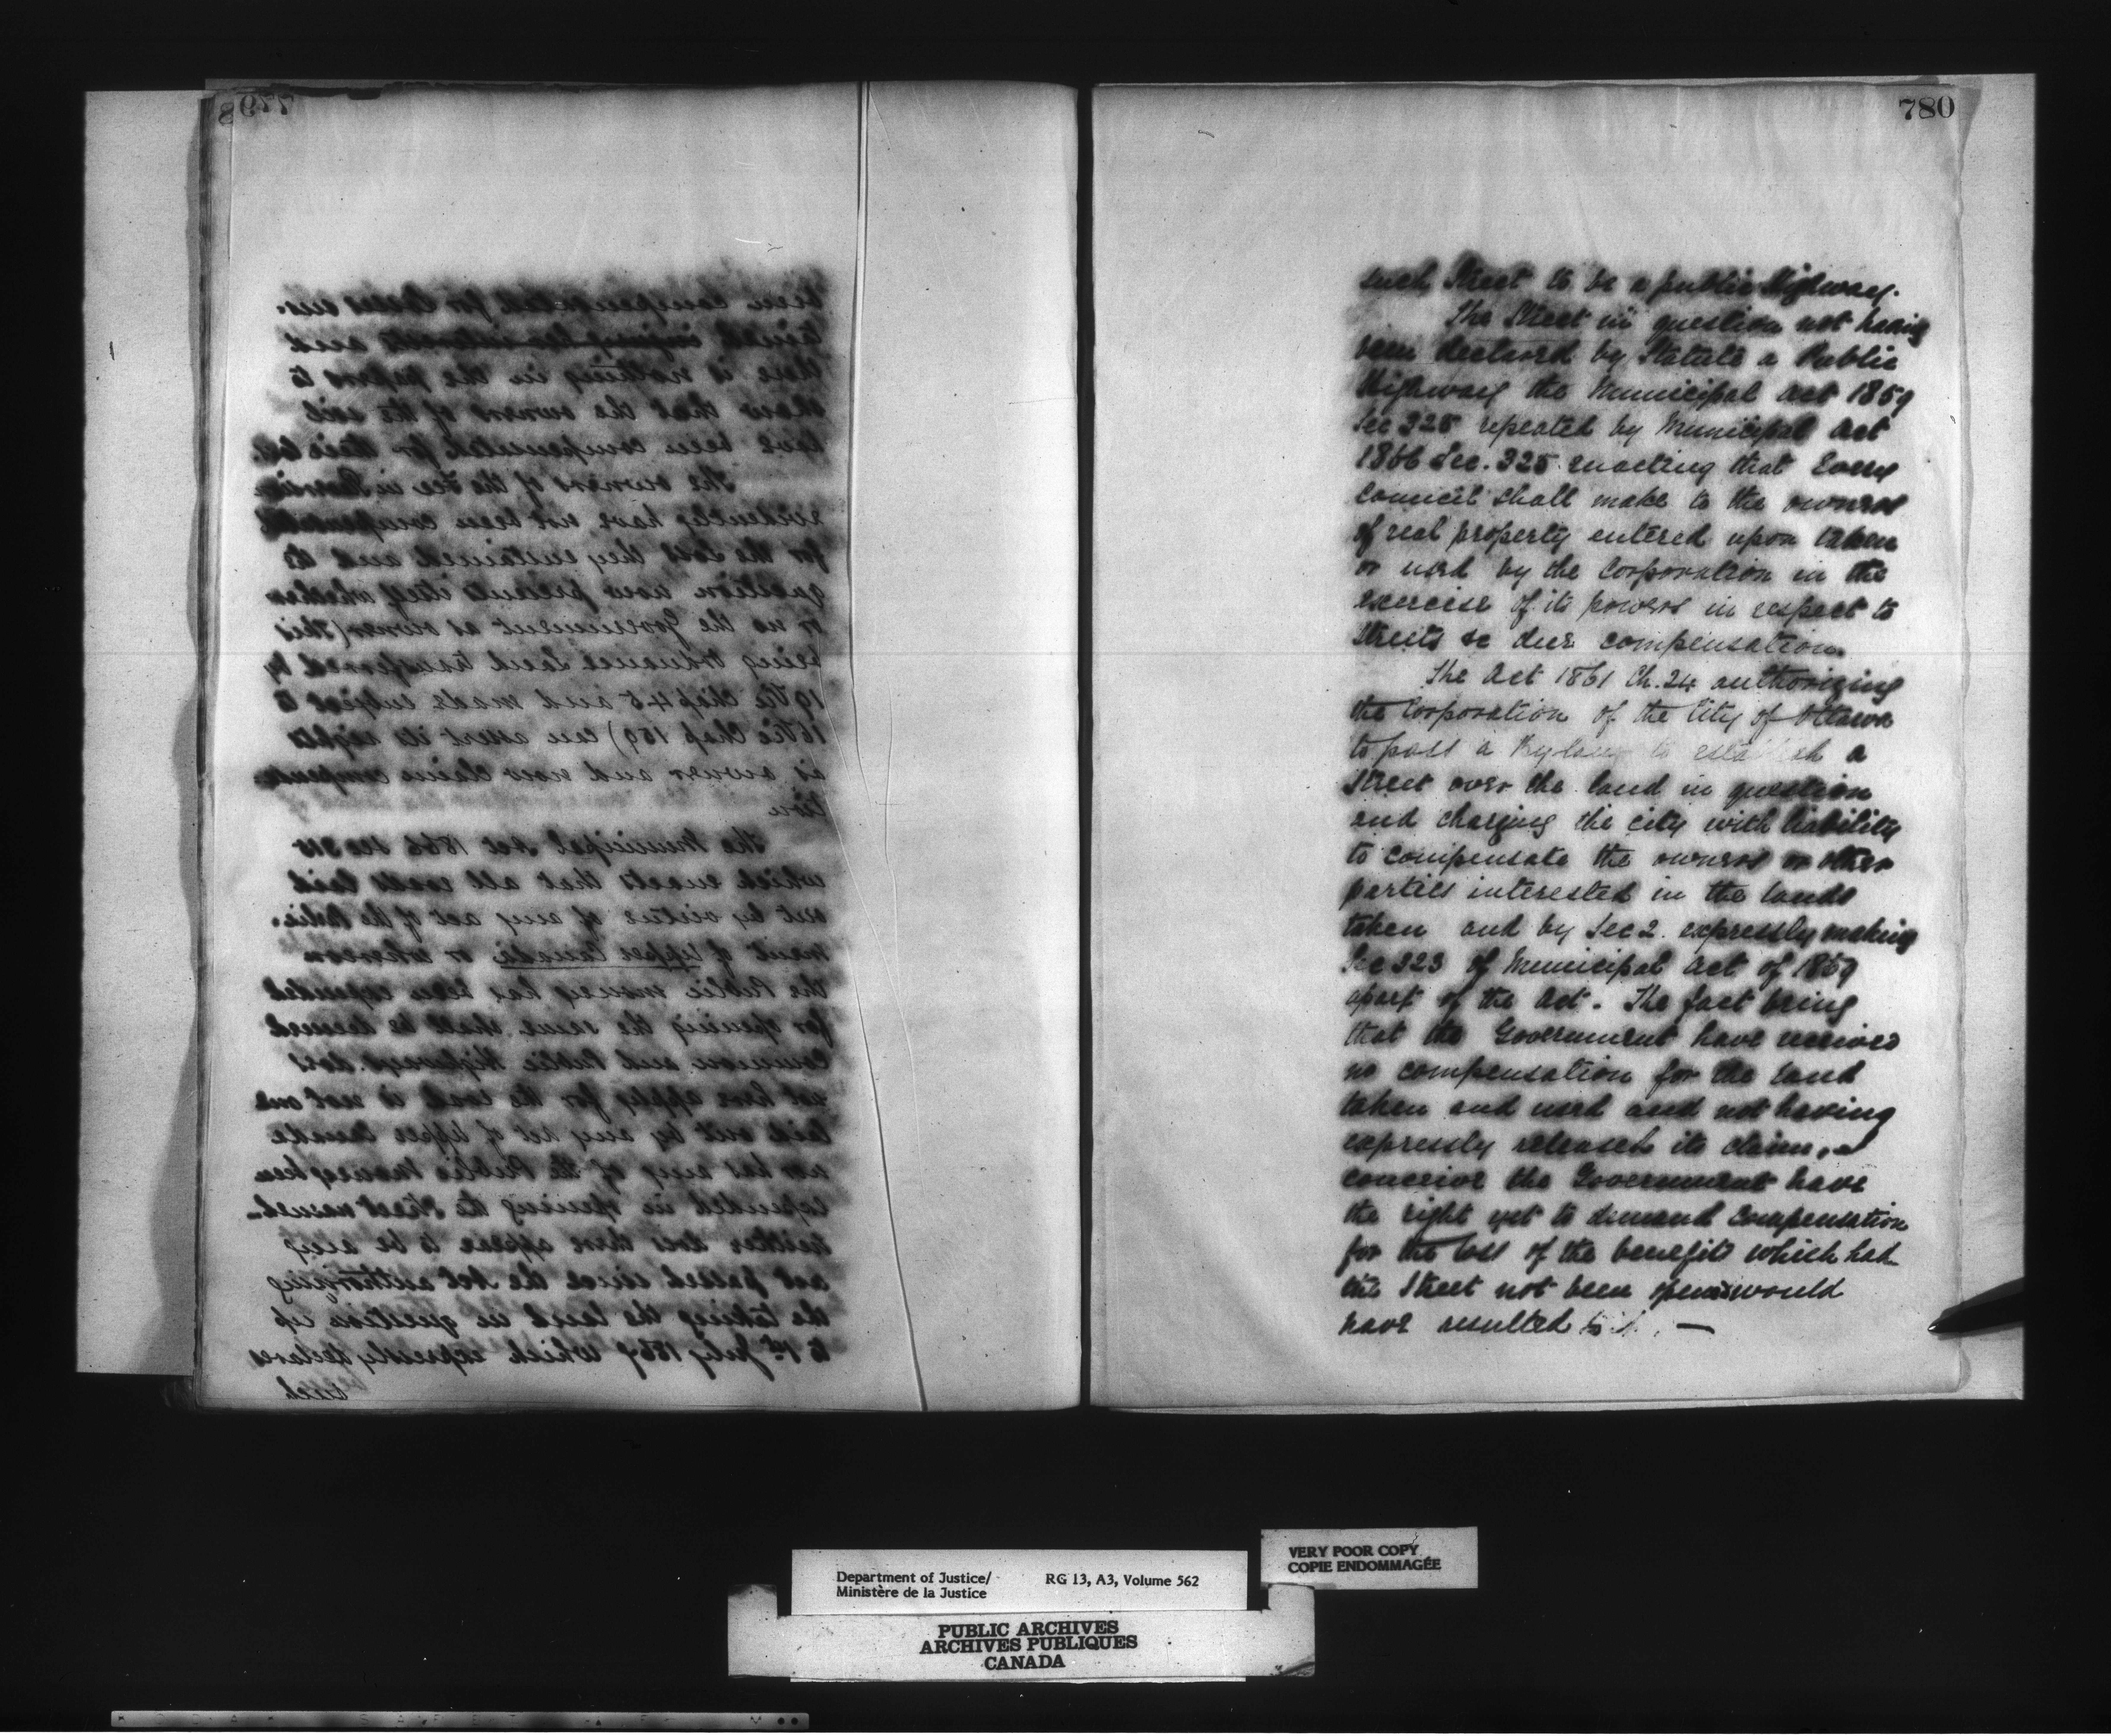 780
such Street to be a public Highway.
The Street in question not having
been declared by Statute a Public
Highway the Municipal Act 1859
Sec 325 repeated by Municipal Act
1866 Sec. 325 enacting that Every
Council shall make to the owners
of real property entered upon taken
or used by the Corporation in the
exercise of its powers in respect to
Streets &c due compensation.
The Act 1861 Ch. 24 authorizing
the Corporation of the City of Ottawa
to pass a Bylaw to establish a
Street over the land in question
and charging the city with liability
to compensate the owners or other
parties interested in the lands
taken and by Sec 2. expressly making
Sec 323 of Municipal Act of 1859
apart of the Act. The fact being
that the Government have received
no compensation for the land
taken and used and not having
expressly released its claim, I
conceive the Government have
the right yet to demand compensation
for the loss of the benefits which had
the Street not been opened would
have resulted to it. —
779
been compensated for
and
there is nothing in the papers to
show that the owners of the soil
have been compensated for their loss.
The owners of the Fee in
evidently have not been compensated
for the loss they sustained and the
question now presents itself whether
or no the Government as owner (this
being Ordnance Land transferred by
19 Vic Chap 45 and made subject to
16 Vic Chap 159) can assert its rights
as owner and now claim compensa
tion
The Municipal Act 1866 Sec 315
which enacts that all roads laid
out by virtue of any act of the Parlia-
ment of Upper Canada or whereon
the Public money has been expended
for opening the same shall be deemed
Common and Public Highways does
not here apply for the road is not one
laid out by any Act of Upper Canada
nor has any of the Public Moneys been
expended in opening the Street named-
neither does there appear to be any
act passed since the Act authorizing
the taking the land in question up
to 1st July 1867 which expressly declares
such
Department of Justice/
Ministère de la Justice
RG 13, A3, Volume 562
VERY POOR COPY
COPIE ENDOMMAGÉE
PUBLIC ARCHIVES
ARCHIVES PUBLIQUES
CANADA